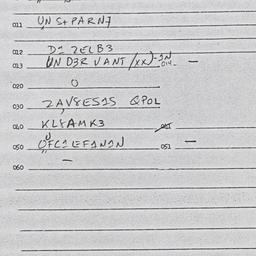 011 UN S+PARN7
012 D1 2ELB3
013 UN D3R VANT /xx)-1N 014 –
020 O
030 ZAV8ES1S QPOL
040 KL8AMK3
050 OFC1LEF1N1N 051 –
060 –